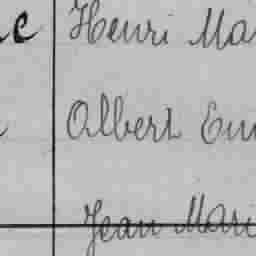 c Henri Ma
Albert Em
Jean Mari